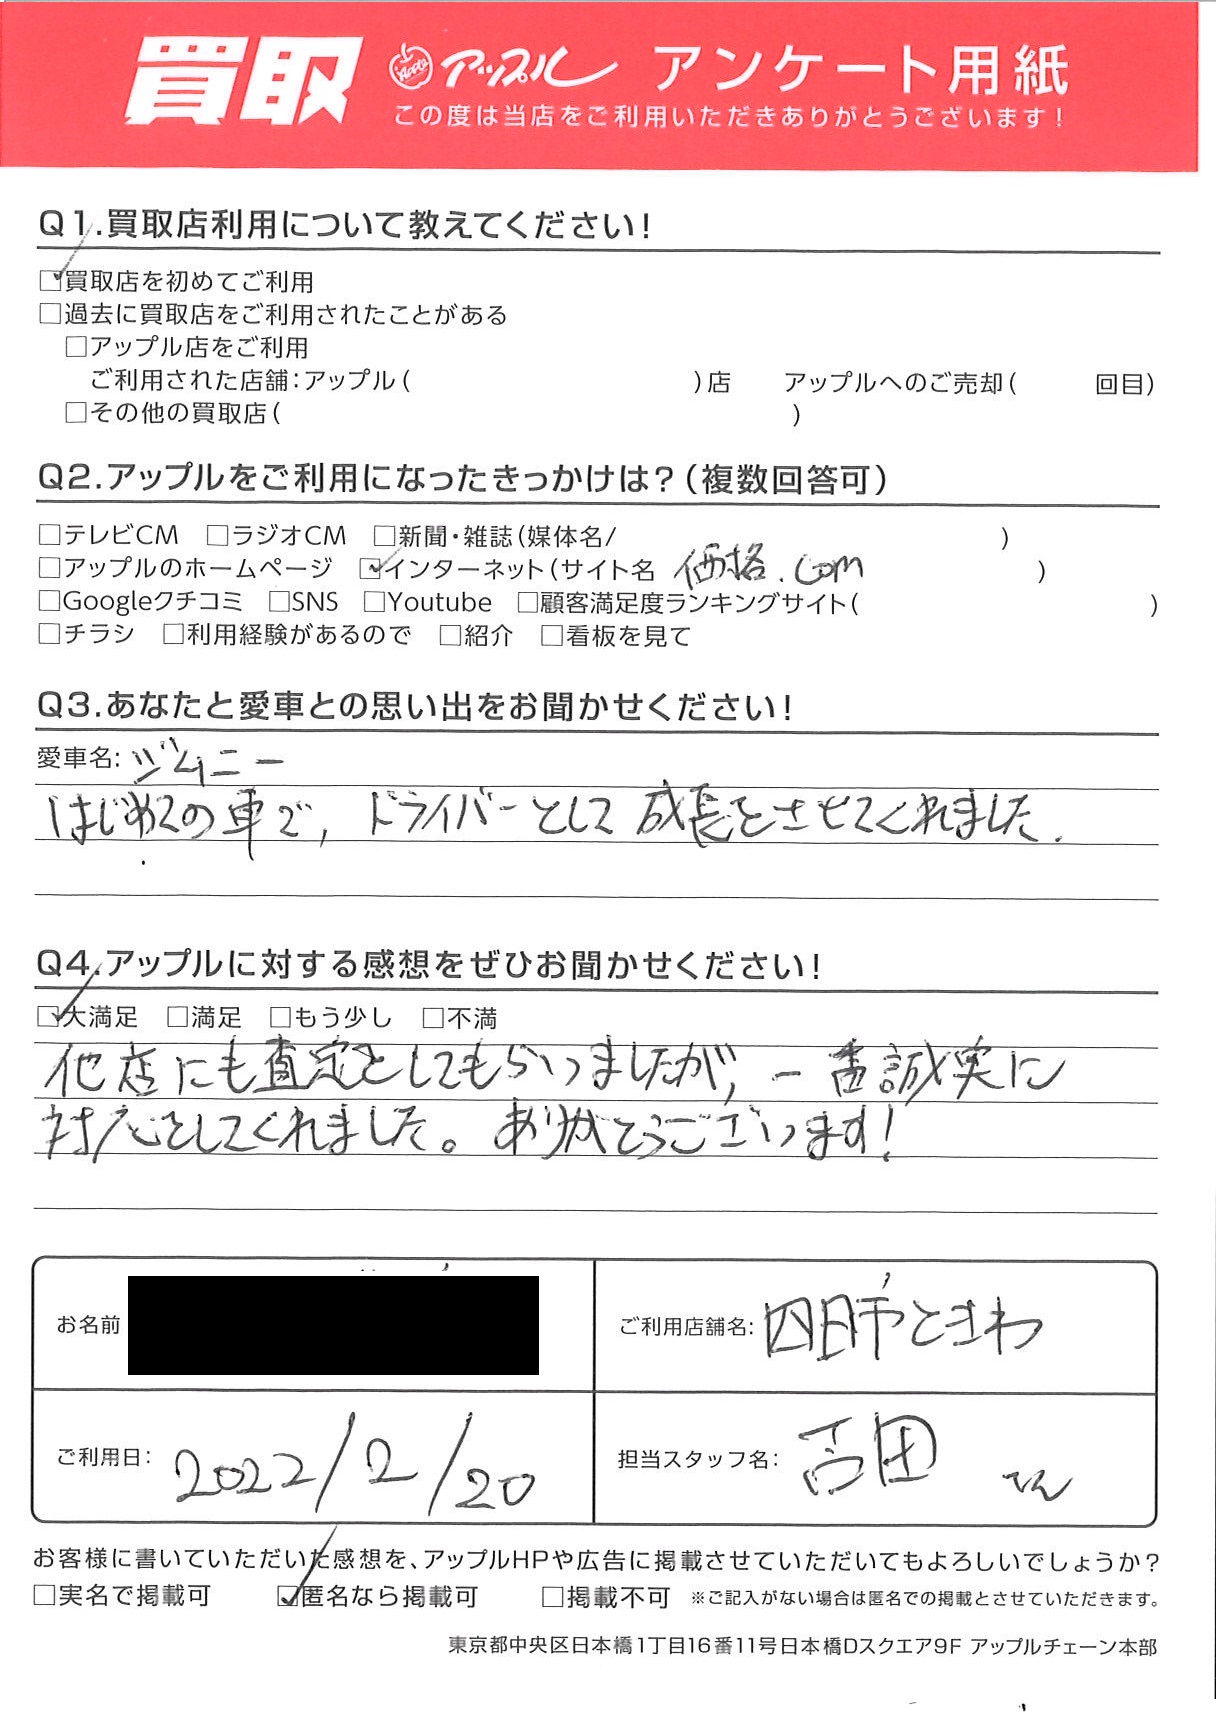 買取 Apple アップル アンケート用紙
この度は当店をご利用いただきありがとうございます!
Q1.買取店利用について教えてください!
☑買取店を初めてご利用
□過去に買取店をご利用されたことがある
□アップル店をご利用
ご利用された店舗:アップル( )店 アップルへのご売却( 回目)
□その他の買取店( )
Q2.アップルをご利用になったきっかけは?(複数回答可)
□テレビCM □ラジオCM □新聞・雑誌(媒体名/ )
□アップルのホームページ ☑インターネット(サイト名 価格.com )
□Googleクチコミ □SNS □Youtube □顧客満足度ランキングサイト( )
□チラシ □利用経験があるので □紹介 □看板を見て
Q3.あなたと愛車との思い出をお聞かせください!
愛車名: ジムニー
はじめての車で, ドライバーとして成長をさせてくれました.
Q4.アップルに対する感想をぜひお聞かせください!
☑大満足 □満足 □もう少し □不満
他店にも査定をしてもらいましたが, 一番誠実に
対応をしてくれました。ありがとうございます!
お名前
ご利用店舗名: 四日市ときわ
ご利用日: 2022/2/20
担当スタッフ名: 吉田 さん
お客様に書いていただいた感想を、アップルHPや広告に掲載させていただいてもよろしいでしょうか?
□実名で掲載可 ☑匿名なら掲載可 □掲載不可 ※ご記入がない場合は匿名での掲載とさせていただきます。
東京都中央区日本橋1丁目16番11号日本橋Dスクエア9F アップルチェーン本部